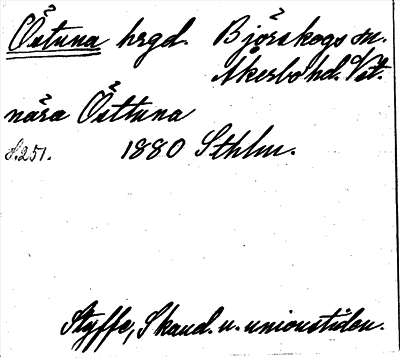 Östuna hrgd. Björskogs sn.
Åkerbo hd. Vst.
nära Östtuna
s. 251. 1880 Sthlm.
Styffe, Skand. u. unionstiden.